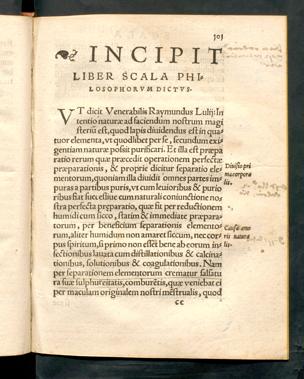 303
INCIPIT
LIBER SCALA PHI-
LOSOPHORVM DICTVS.
VT dicit Venerabilis Raymundus Lulij: In
tentio naturæ ad faciendum nostrum magi
steriũ est, quod lapis diuidendus est in qua-
tuor elementa, vt quodlibet per se, secundum exi
gentiam naturæ possit purificari. Et illa est præpa
ratio rerum quæ præcedit operationem perfectæ
præparationis, & proprie dicitur separatio ele-
mentorum, quoniam illa diuidit omnes partes im
puras a partibus puris, vt cum leuioribus & purio
ribus fiat successiue cum naturali coniunctione no
stra perfecta præparatio, quæ fit per reductionem
humidi cum sicco, statim & immediate præpara-
torum, per beneficium separationis elemento
rum, aliter humidum non amaret siccum, nec cor
pus spiritum, si primo non esset bene ab eorum in
fectionibus lauata cum distillationibus & calcina
tionibus, solutionibus & coagulationibus. Nam
per separationem elementorum crematur salsitu
ra suæ sulphureitatis, comburẽtis, quæ veniebat ei
per maculam originalem nostri mẽstrualis, quod
Diuisio pri
ma corpora
lis.
Causa
naturæ
CC